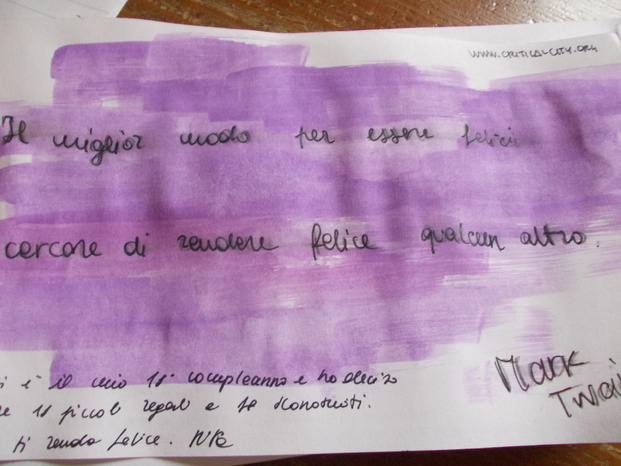 www.criticalcity.org
Il miglior modo per essere felici
cercare di rendere felice qualcun altro.
Mark
Twai
i è il mio 18° compleanno e ho deciso
e 18 piccoli regali a 18 sconosciuti.
ti renda felice.